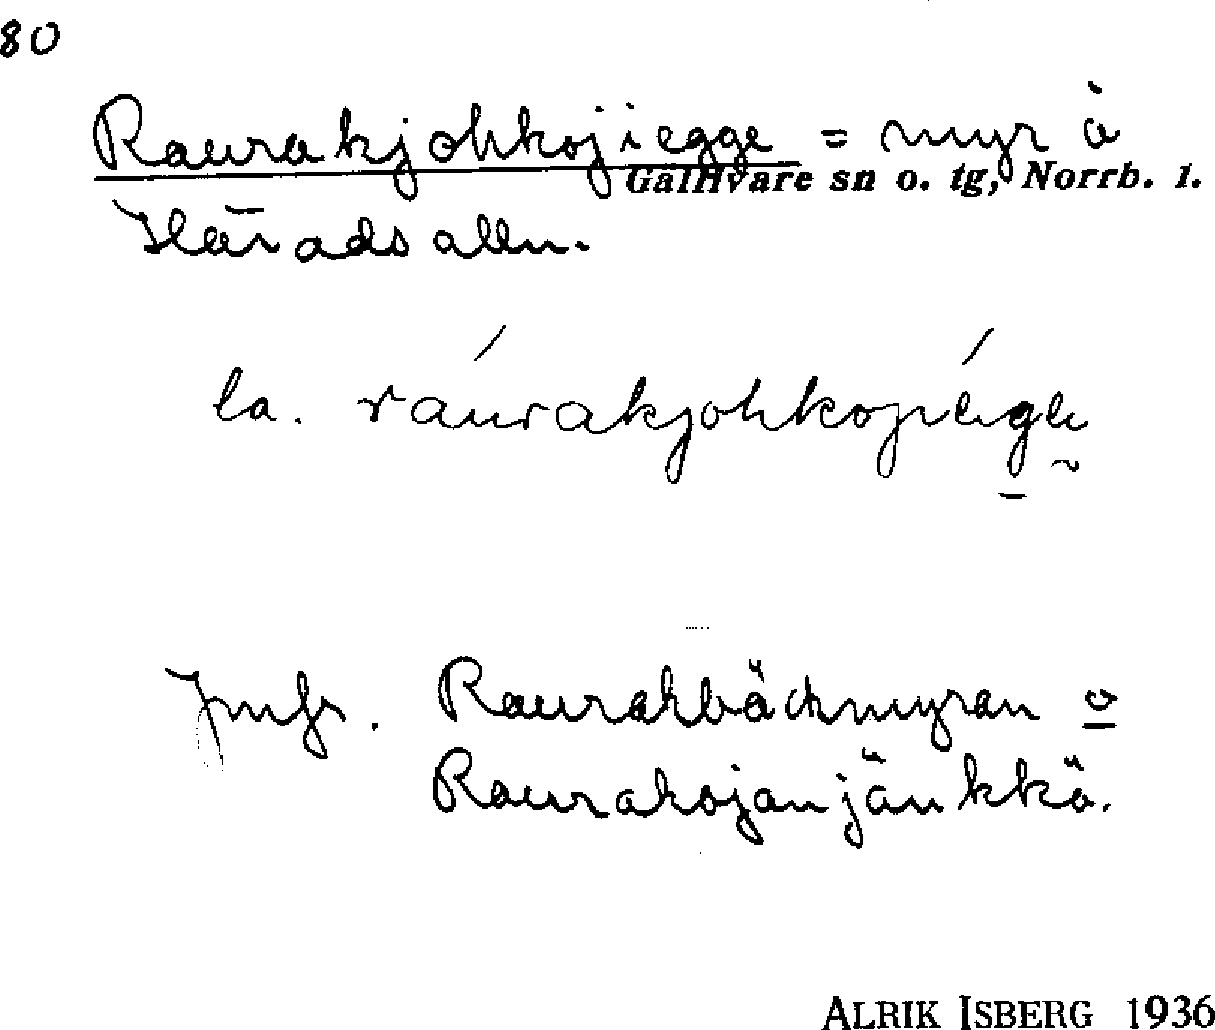 80
Raurakjohkojiegge = myr å
Gällivare sn o. tg, Norrb. l.
Härads allm.
la. ráurakjohkojiéggè
Jmfr. Raurakbäckmyran o
Raurakojanjänkkä.
ALRIK ISBERG 1936